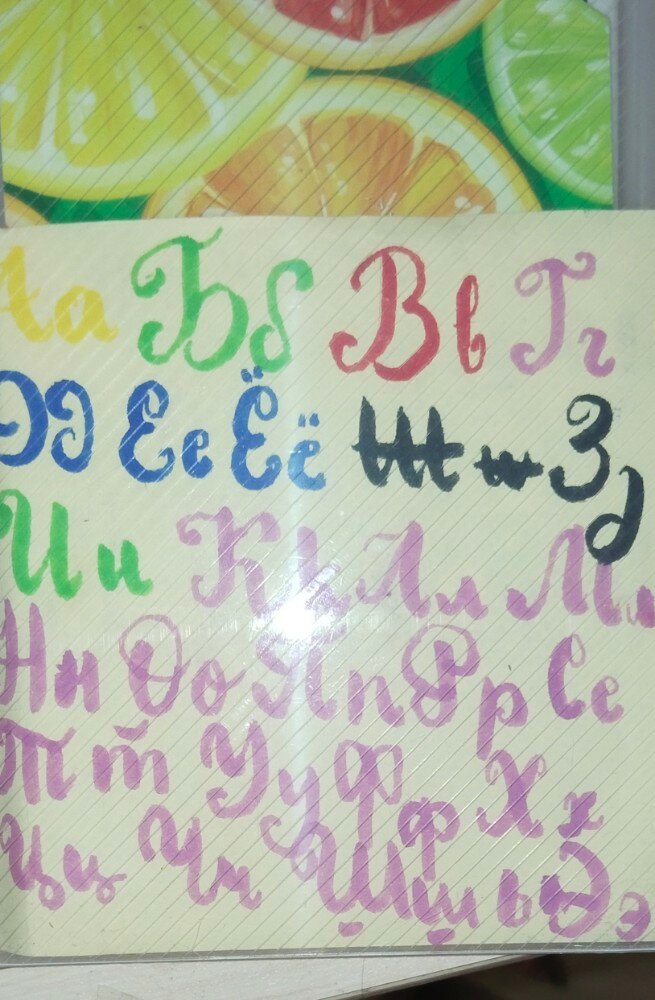 Аа Бб Вв Гг
Дд Ее Ёё Жж Зз
Ии Кк Лл Мм
Нн Оо Пп Рр Сс
Тт Уу Фф Хх
Цц Чч Щщ ь Ээ